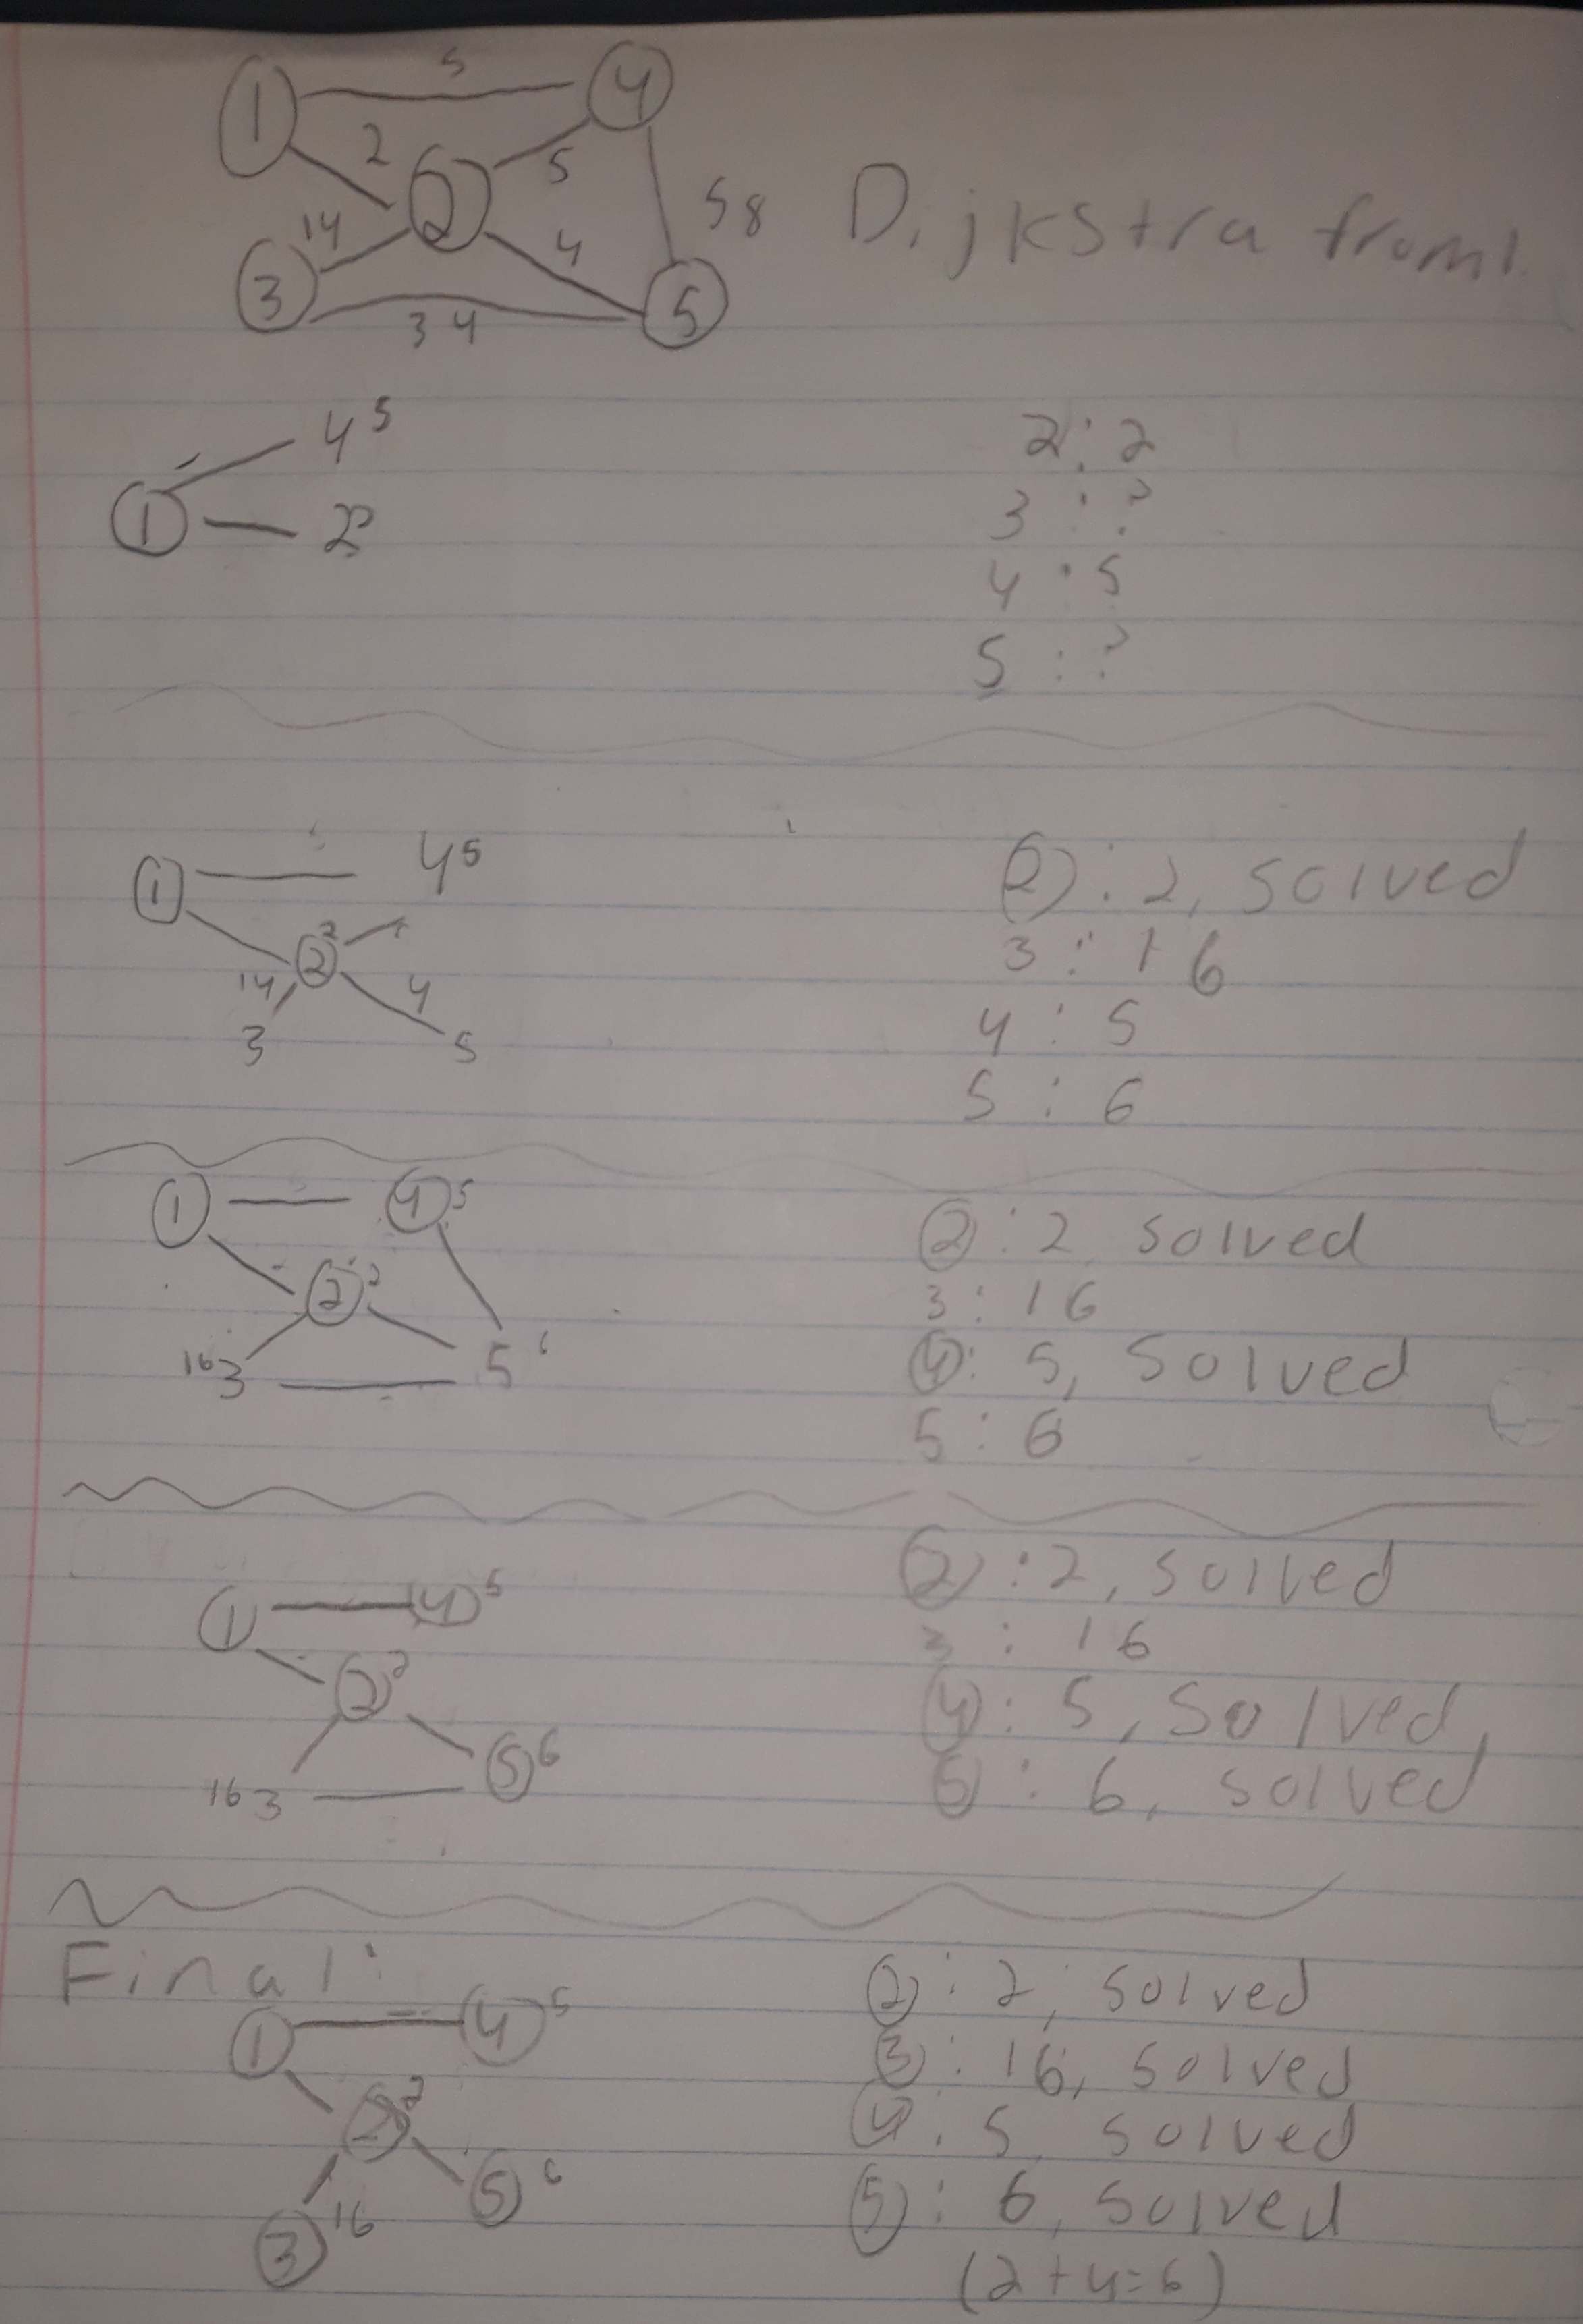 5
1 4
2
2 5
14 58 Dijkstra from 1.
4
3 5
34
4 5
1 2 2
2 : 2
3 : ?
4 : 5
5 : ?
4 5
1
2 2
14 4
3 5
2 : 2, solved
3 : 16
4 : 5
5 : 6
1 4 5
2 2
16 3 5 6
2 : 2 solved
3 : 16
4 : 5, solved
5 : 6
1 4 5
2 2
5 6
16 3
2 : 2, solved
3 : 16
4 : 5, solved,
5 : 6, solved
Final:
1 4 5
2 2
5 6
3 16
2 : 2, solved
3 : 16, solved
4 : 5 solved
5 : 6, solved
(2+4=6)